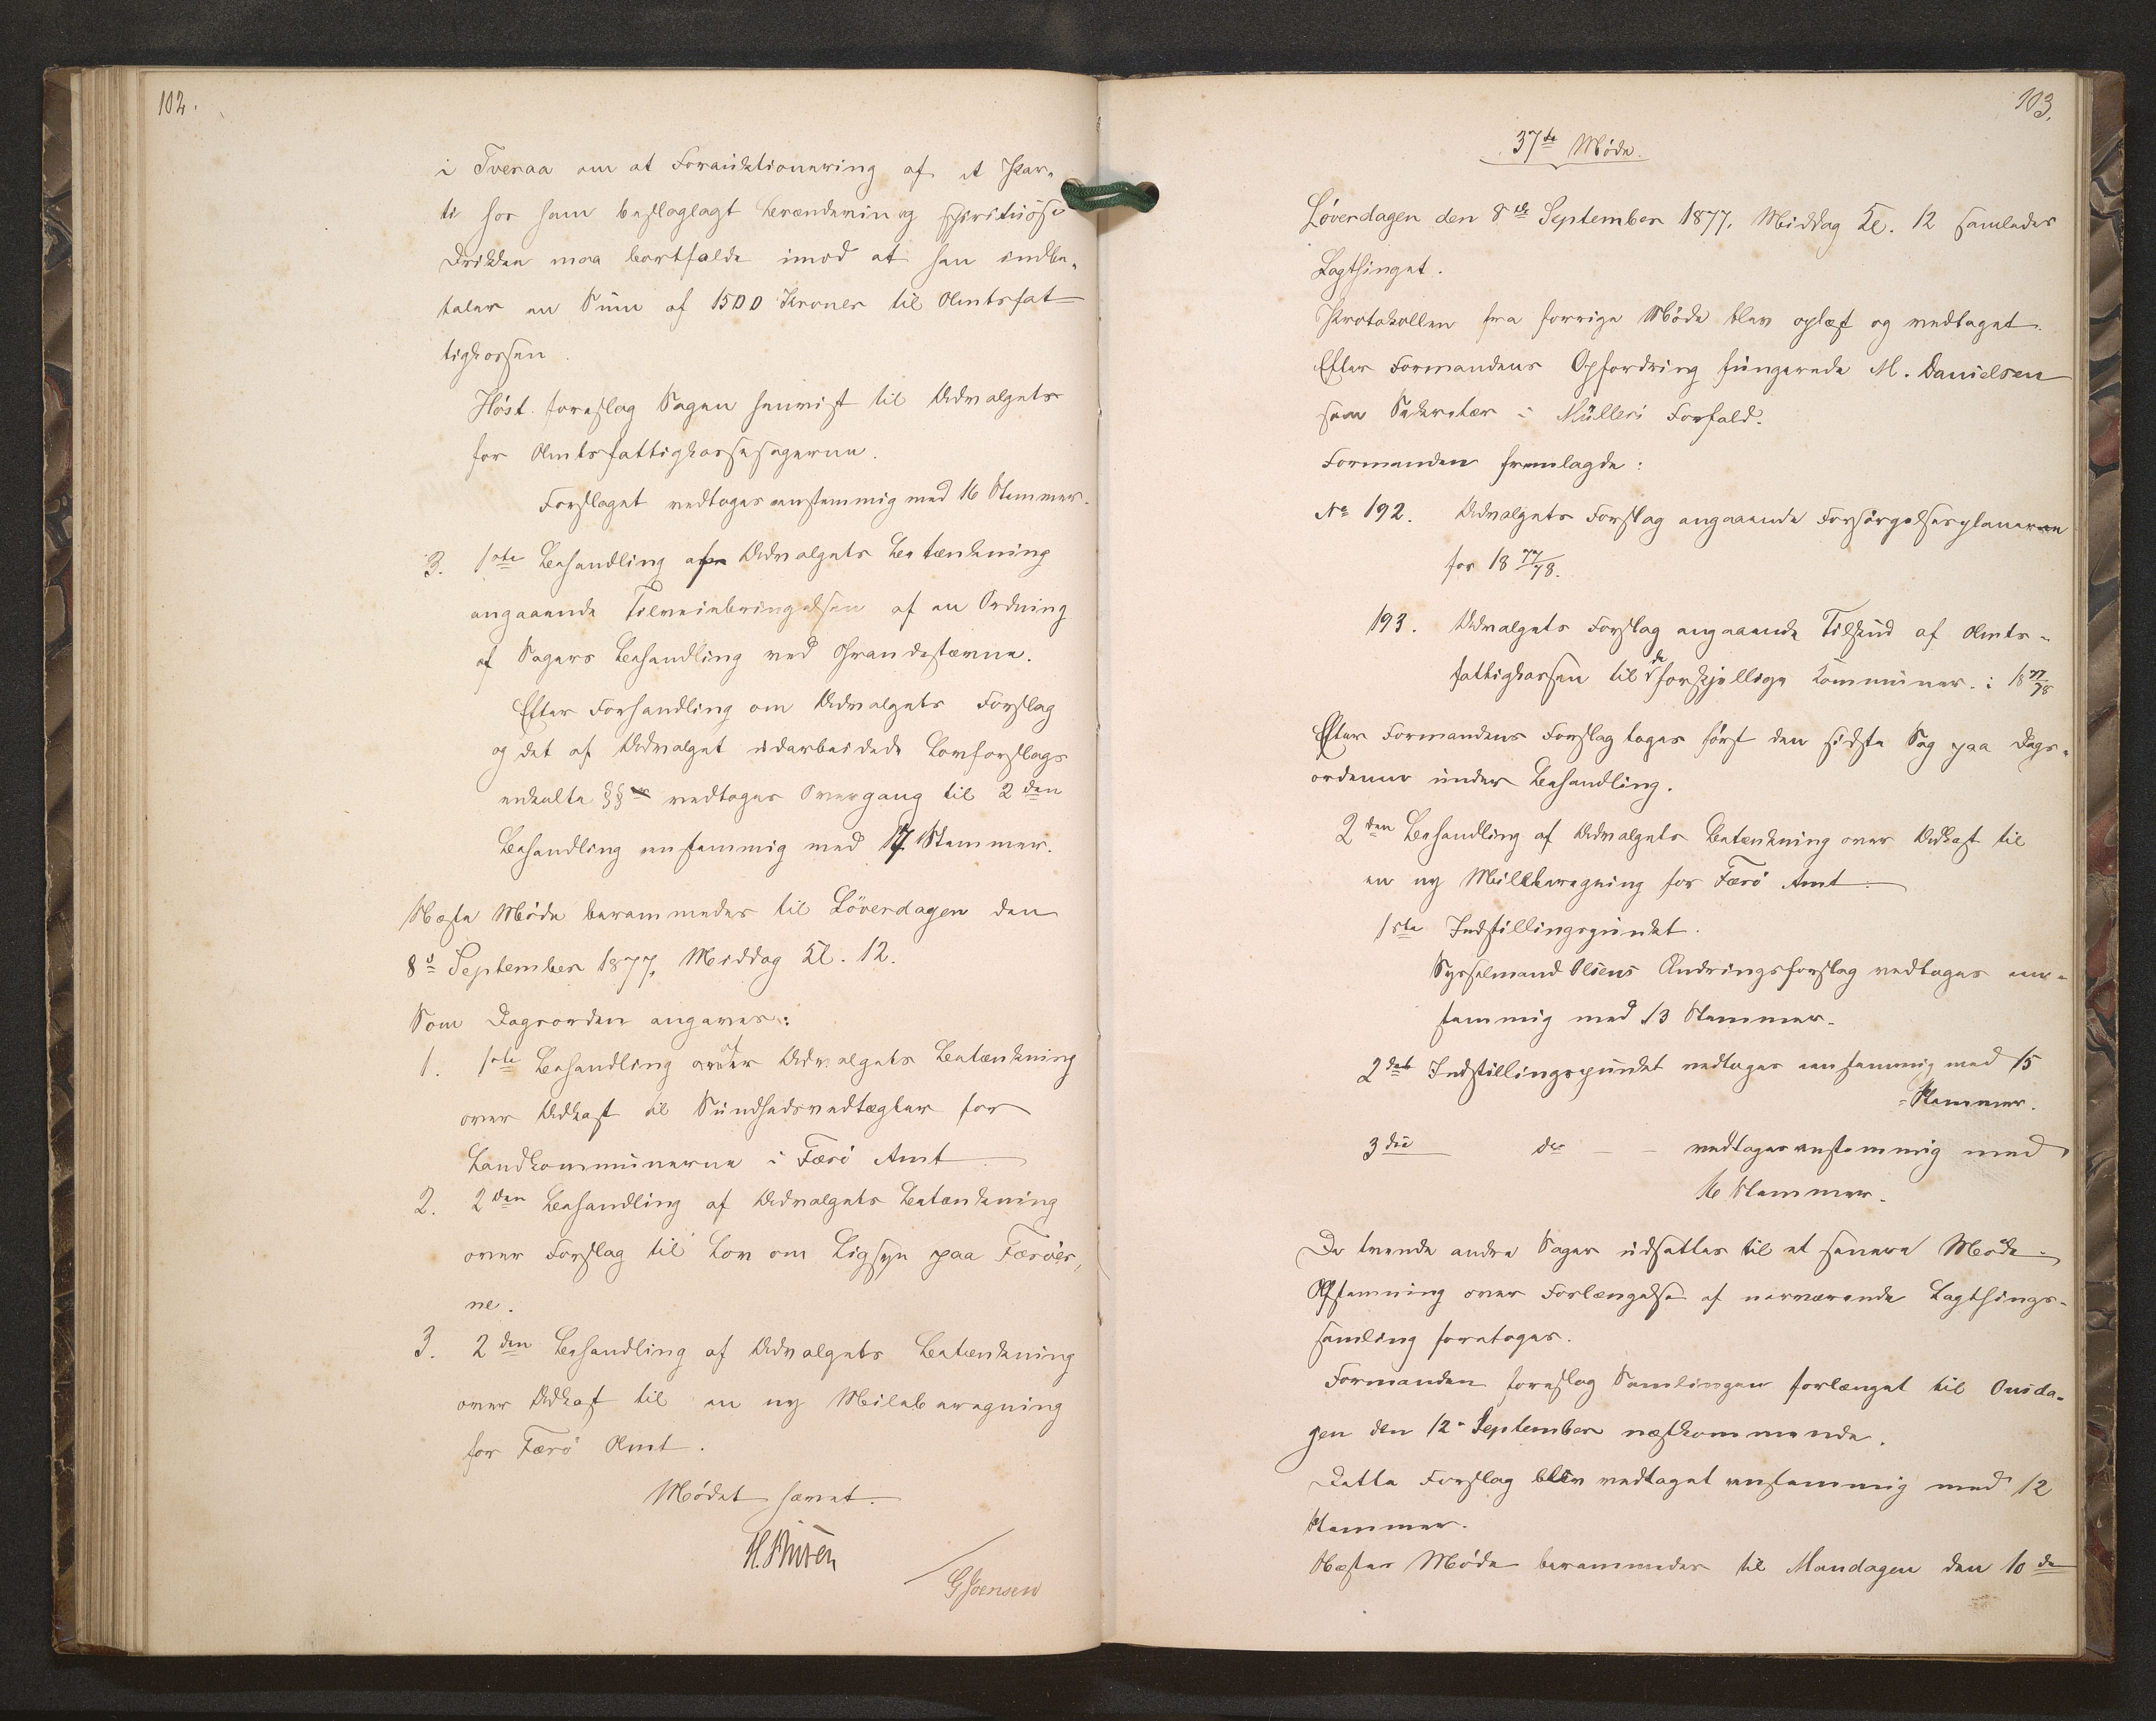 102.
i Tveraa om at Forauktionering af et Par-
ti hos ham beslaglagt Brændeviin og spirituøse
Drikke maa bortfalde imod at han indbe-
taler en Sum af 1500 Kroner til Amtsfat
tigkassen.
Høst foreslog Sagen henvist til Udvalget
for Amtsfattigkassesagerne.
Forslaget vedtoges eenstemmig med 16 Stemmer.
3. 1ste Behandling af Udvalgets Betænkning
angaaende Tilveiebringelsen af en Ordning
af Sagers Behandling ved Grandestævne.
Efter Forhandling om Udvalgets Forslag
og det af Udvalget udarbeidede Lovforslags
enkelte §§ vedtoges Overgang til 2den
Behandling eenstemmig med 17 Stemmer.
Næste Møde berammedes til Løverdagen den
8d September 1877, Middag Kl. 12.
Som Dagsorden angaves:
1. 1ste Behandling af Udvalgets Betænkning
over Udkast til Sundhedsvedtægter for
Landkommunerne i Færø Amt.
2. 2den Behandling af Udvalgets Betænkning
over Forslag til Lov om Ligsyn paa Færøer,
ne.
3. 2den Behandling af Udvalgets Betænkning
over Udkast til en ny Meileberegning
for Færø Amt.
Mødet hævet.
GJoensen
103.
37te Møde.
Løverdagen den 8de September 1877, Middag Kl. 12 samledes
Lagthinget.
Protokollen fra forrige Møde blev oplæst og vedtaget.
Efter Formandens Opfordring fungerede M. Danielsen
som Sekretær i Müllers Forfald.
Formanden fremlagde:
No 192. Udvalgets Forslag angaaende Forsørgelsesplanerne
for 18 77/78.
193. Udvalgets Forslag angaaende Tilskud af Amts-
fattigkassen til de forskjellige Kommuner i 18 77/78
Efter Formandens Forslag toges først den sidste Sag paa Dags-
ordenen under Behandling.
2den Behandling af Udvalgets Betænkning over Udkast til
en ny Meilberegning for Færø Amt.
1ste Indstillingspunkt.
Sysselmand Olsens Ændringsforslag vedtoges een-
stemmig med 13 Stemmer.
2det Indstillingspunkt vedtoges eenstemmig med 15
Stemmer.
3die do - - vedtoges eenstemmig med
16 Stemmer.
De tvende andre Sager udsattes til et senere Møde.
Afstemning over Forlængelse af nærværende Lagthings-
samling foretoges.
Formanden foreslog Samlingen forlænget til Onsda-
gen den 12 September næstkommende.
Dette Forslag blev vedtaget eenstemmig med 12
Stemmer.
Næste Møde berammedes til Mandagen den 10de